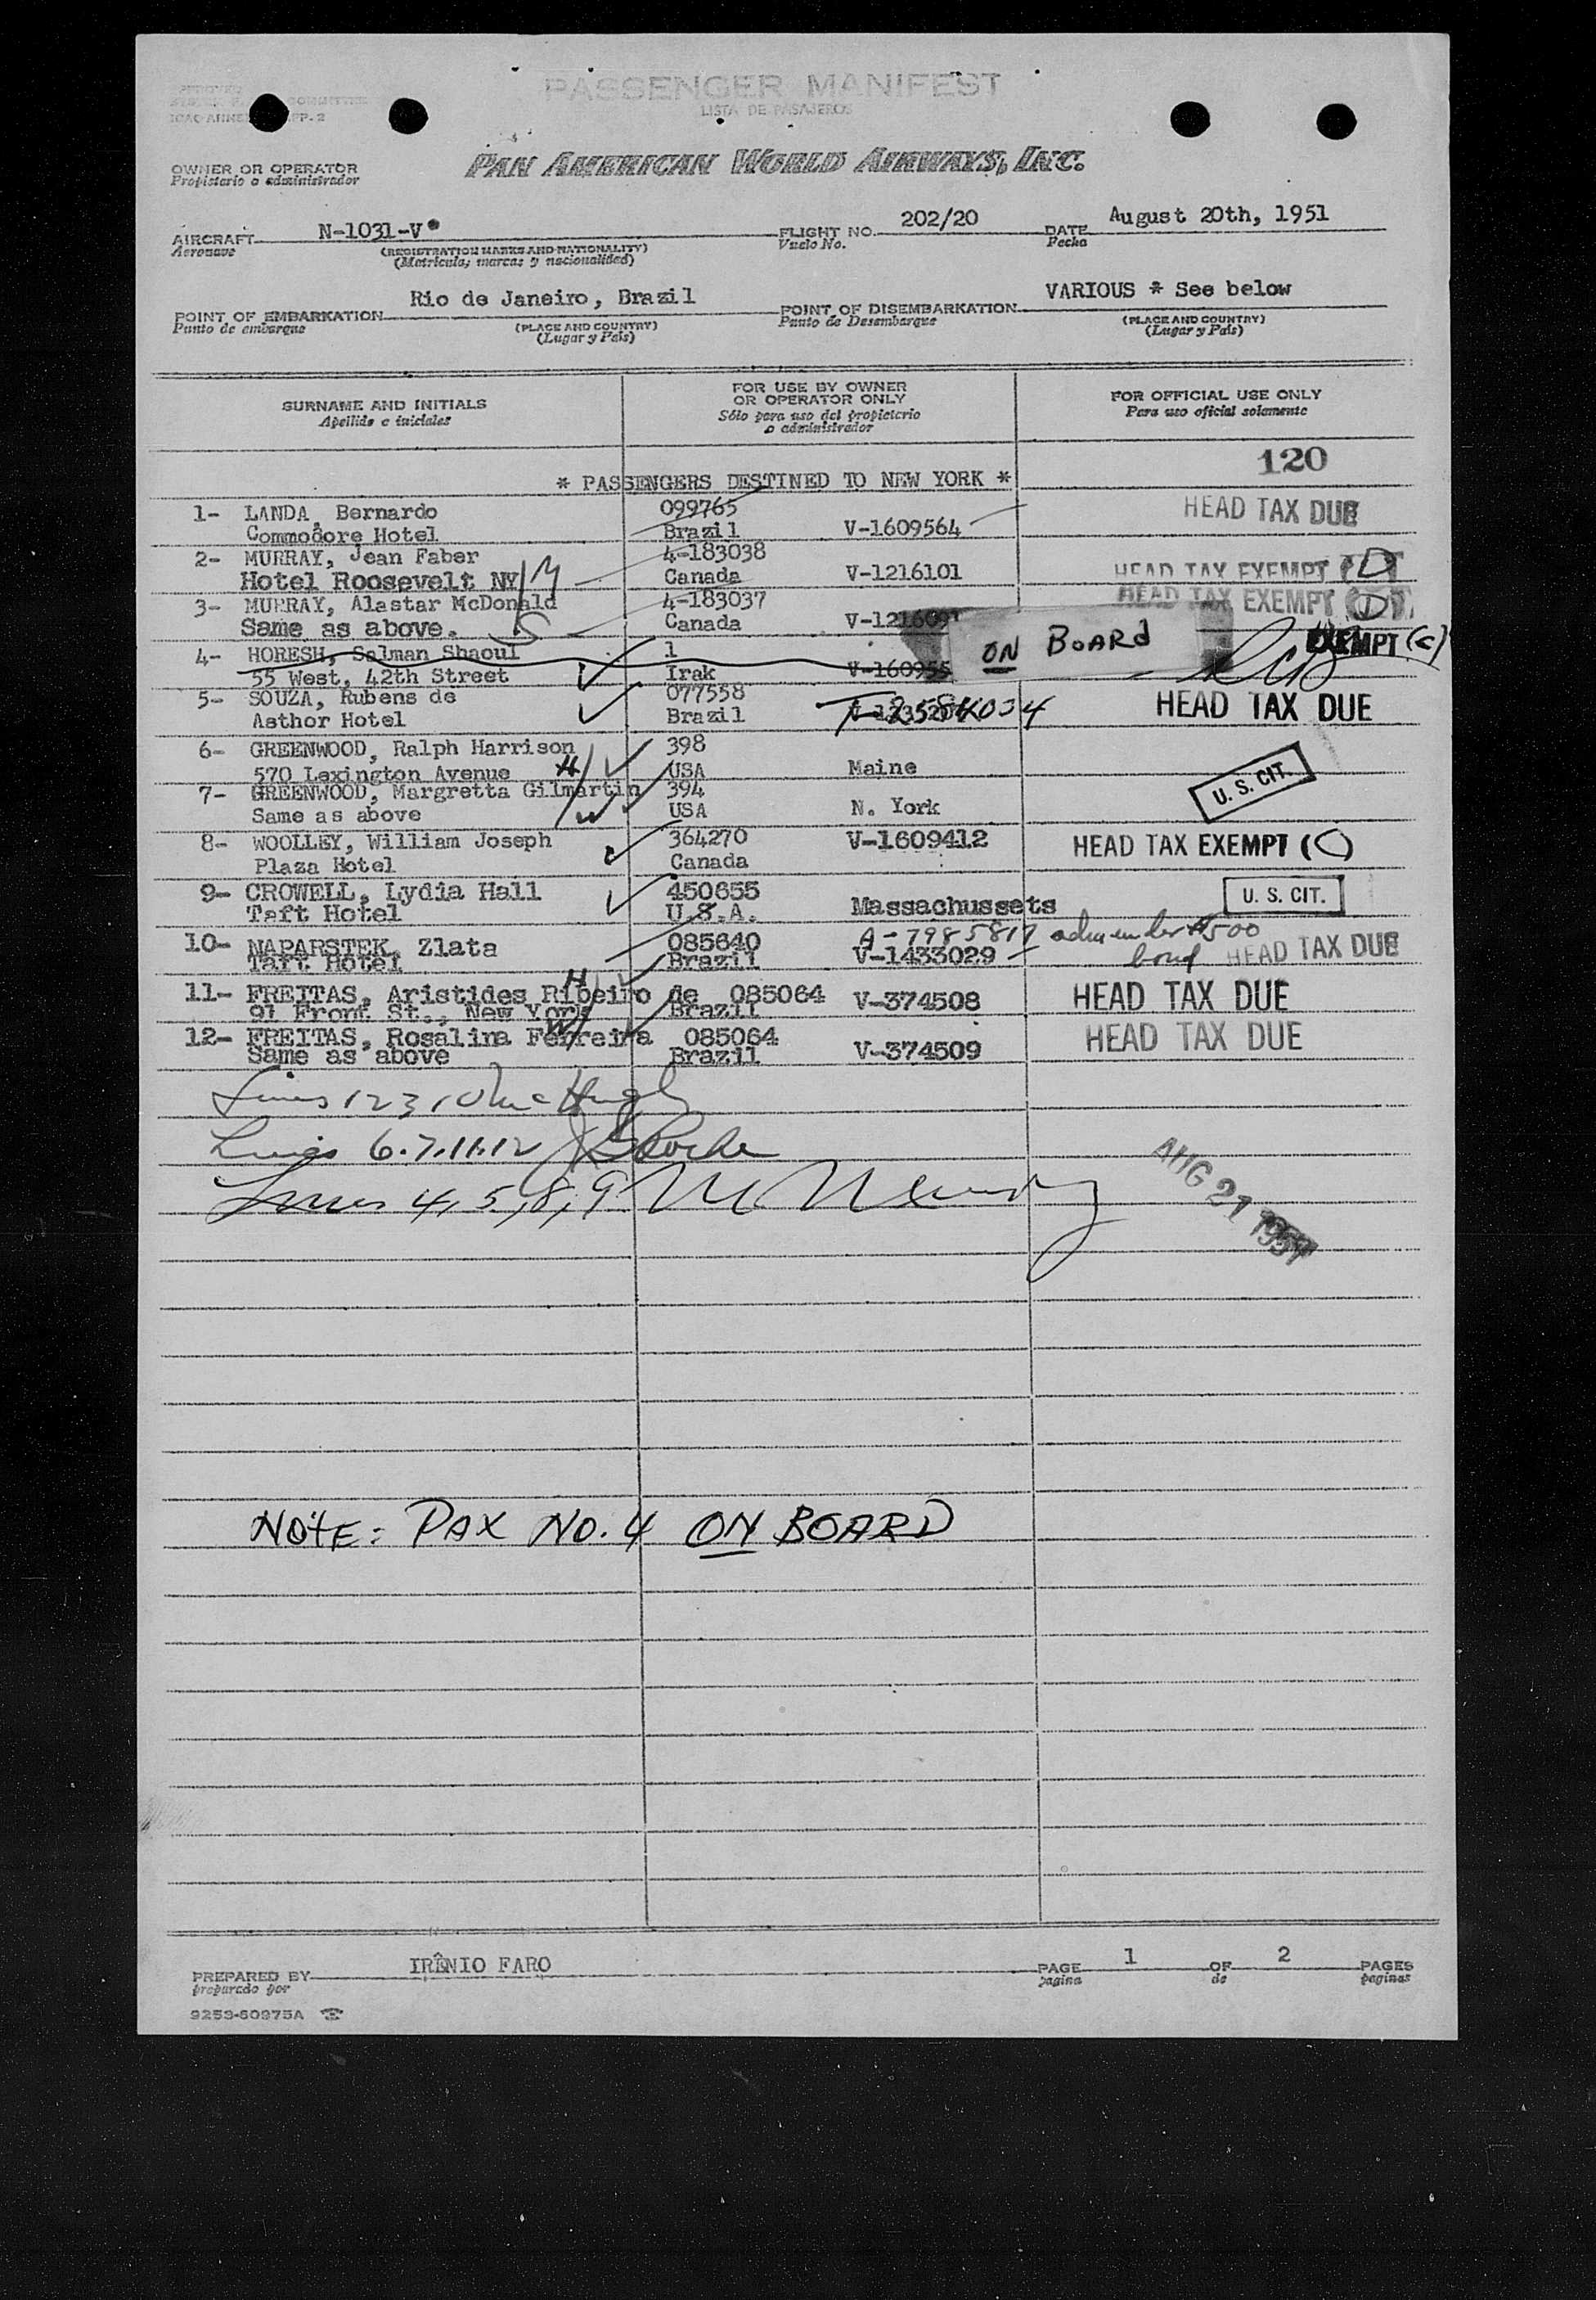 PASSENGER MANIFEST
LISTA DE PASAJEROS
ICAO ANNEX PP. 2
OWNER OR OPERATOR PAN AMERICAN WORLD AIRWAYS, INC.
Propietario o administrador
AIRCRAFT N-1031-V FLIGHT NO. 202/20 DATE August 20th, 1951
Aeronave (REGISTRATION MARKS AND NATIONALITY) Vuelo No. Fecha
(Matricula, marcas y nacionalidad)
POINT OF EMBARKATION Rio de Janeiro, Brazil POINT OF DISEMBARKATION VARIOUS * See below
Punto de embarque (PLACE AND COUNTRY) Punto de Desembarque (PLACE AND COUNTRY)
(Lugar y País) (Lugar y País)
SURNAME AND INITIALS FOR USE BY OWNER OR OPERATOR ONLY FOR OFFICIAL USE ONLY
Apellido e iniciales Sólo para uso del propietario o administrador Para uso oficial solamente
120
* PASSENGERS DESTINED TO NEW YORK *
1- LANDA, Bernardo 099765 HEAD TAX DUE
Commodore Hotel Brazil V-1609564
2- MURRAY, Jean Faber 4-183038
Hotel Roosevelt NY M Canada V-1216101 HEAD TAX EXEMPT (D)
3- MURRAY, Alastar McDonald 4-183037 HEAD TAX EXEMPT (D)
Same as above. S Canada V-121609
4- HORESH, Salman Shaoul 1 ON BOARD EXEMPT (C)
55 West, 42th Street Irak V-160955
5- SOUZA, Rubens de 077558
Asthor Hotel Brazil T-2584034 HEAD TAX DUE
6- GREENWOOD, Ralph Harrison 398
570 Lexington Avenue H USA Maine
7- GREENWOOD, Margretta Gilmartin 394 U. S. CIT.
Same as above W USA N. York
8- WOOLLEY, William Joseph 364270 V-1609412 HEAD TAX EXEMPT (C)
Plaza Hotel Canada
9- CROWELL, Lydia Hall 450655 U. S. CIT.
Taft Hotel U.S.A. Massachussets
10- NAPARSTEK, Zlata 085640 A-7985817 adm under $500
Taft Hotel Brazil V-1433029 bond HEAD TAX DUE
11- FREITAS, Aristides Ribeiro de 085064 H V-374508 HEAD TAX DUE
91 Front St., New York Brazil
12- FREITAS, Rosalina Ferreira 085064 W HEAD TAX DUE
Same as above Brazil V-374509
Lines 1 2 3 10
Lines 6.7.11.12
Lines 4, 5, 8, 9
AUG 21 1951
NOTE: PAX NO. 4 ON BOARD
PREPARED BY IRÊNIO FARO PAGE 1 OF 2 PAGES
preparado por pagina de paginas
9253-60975A